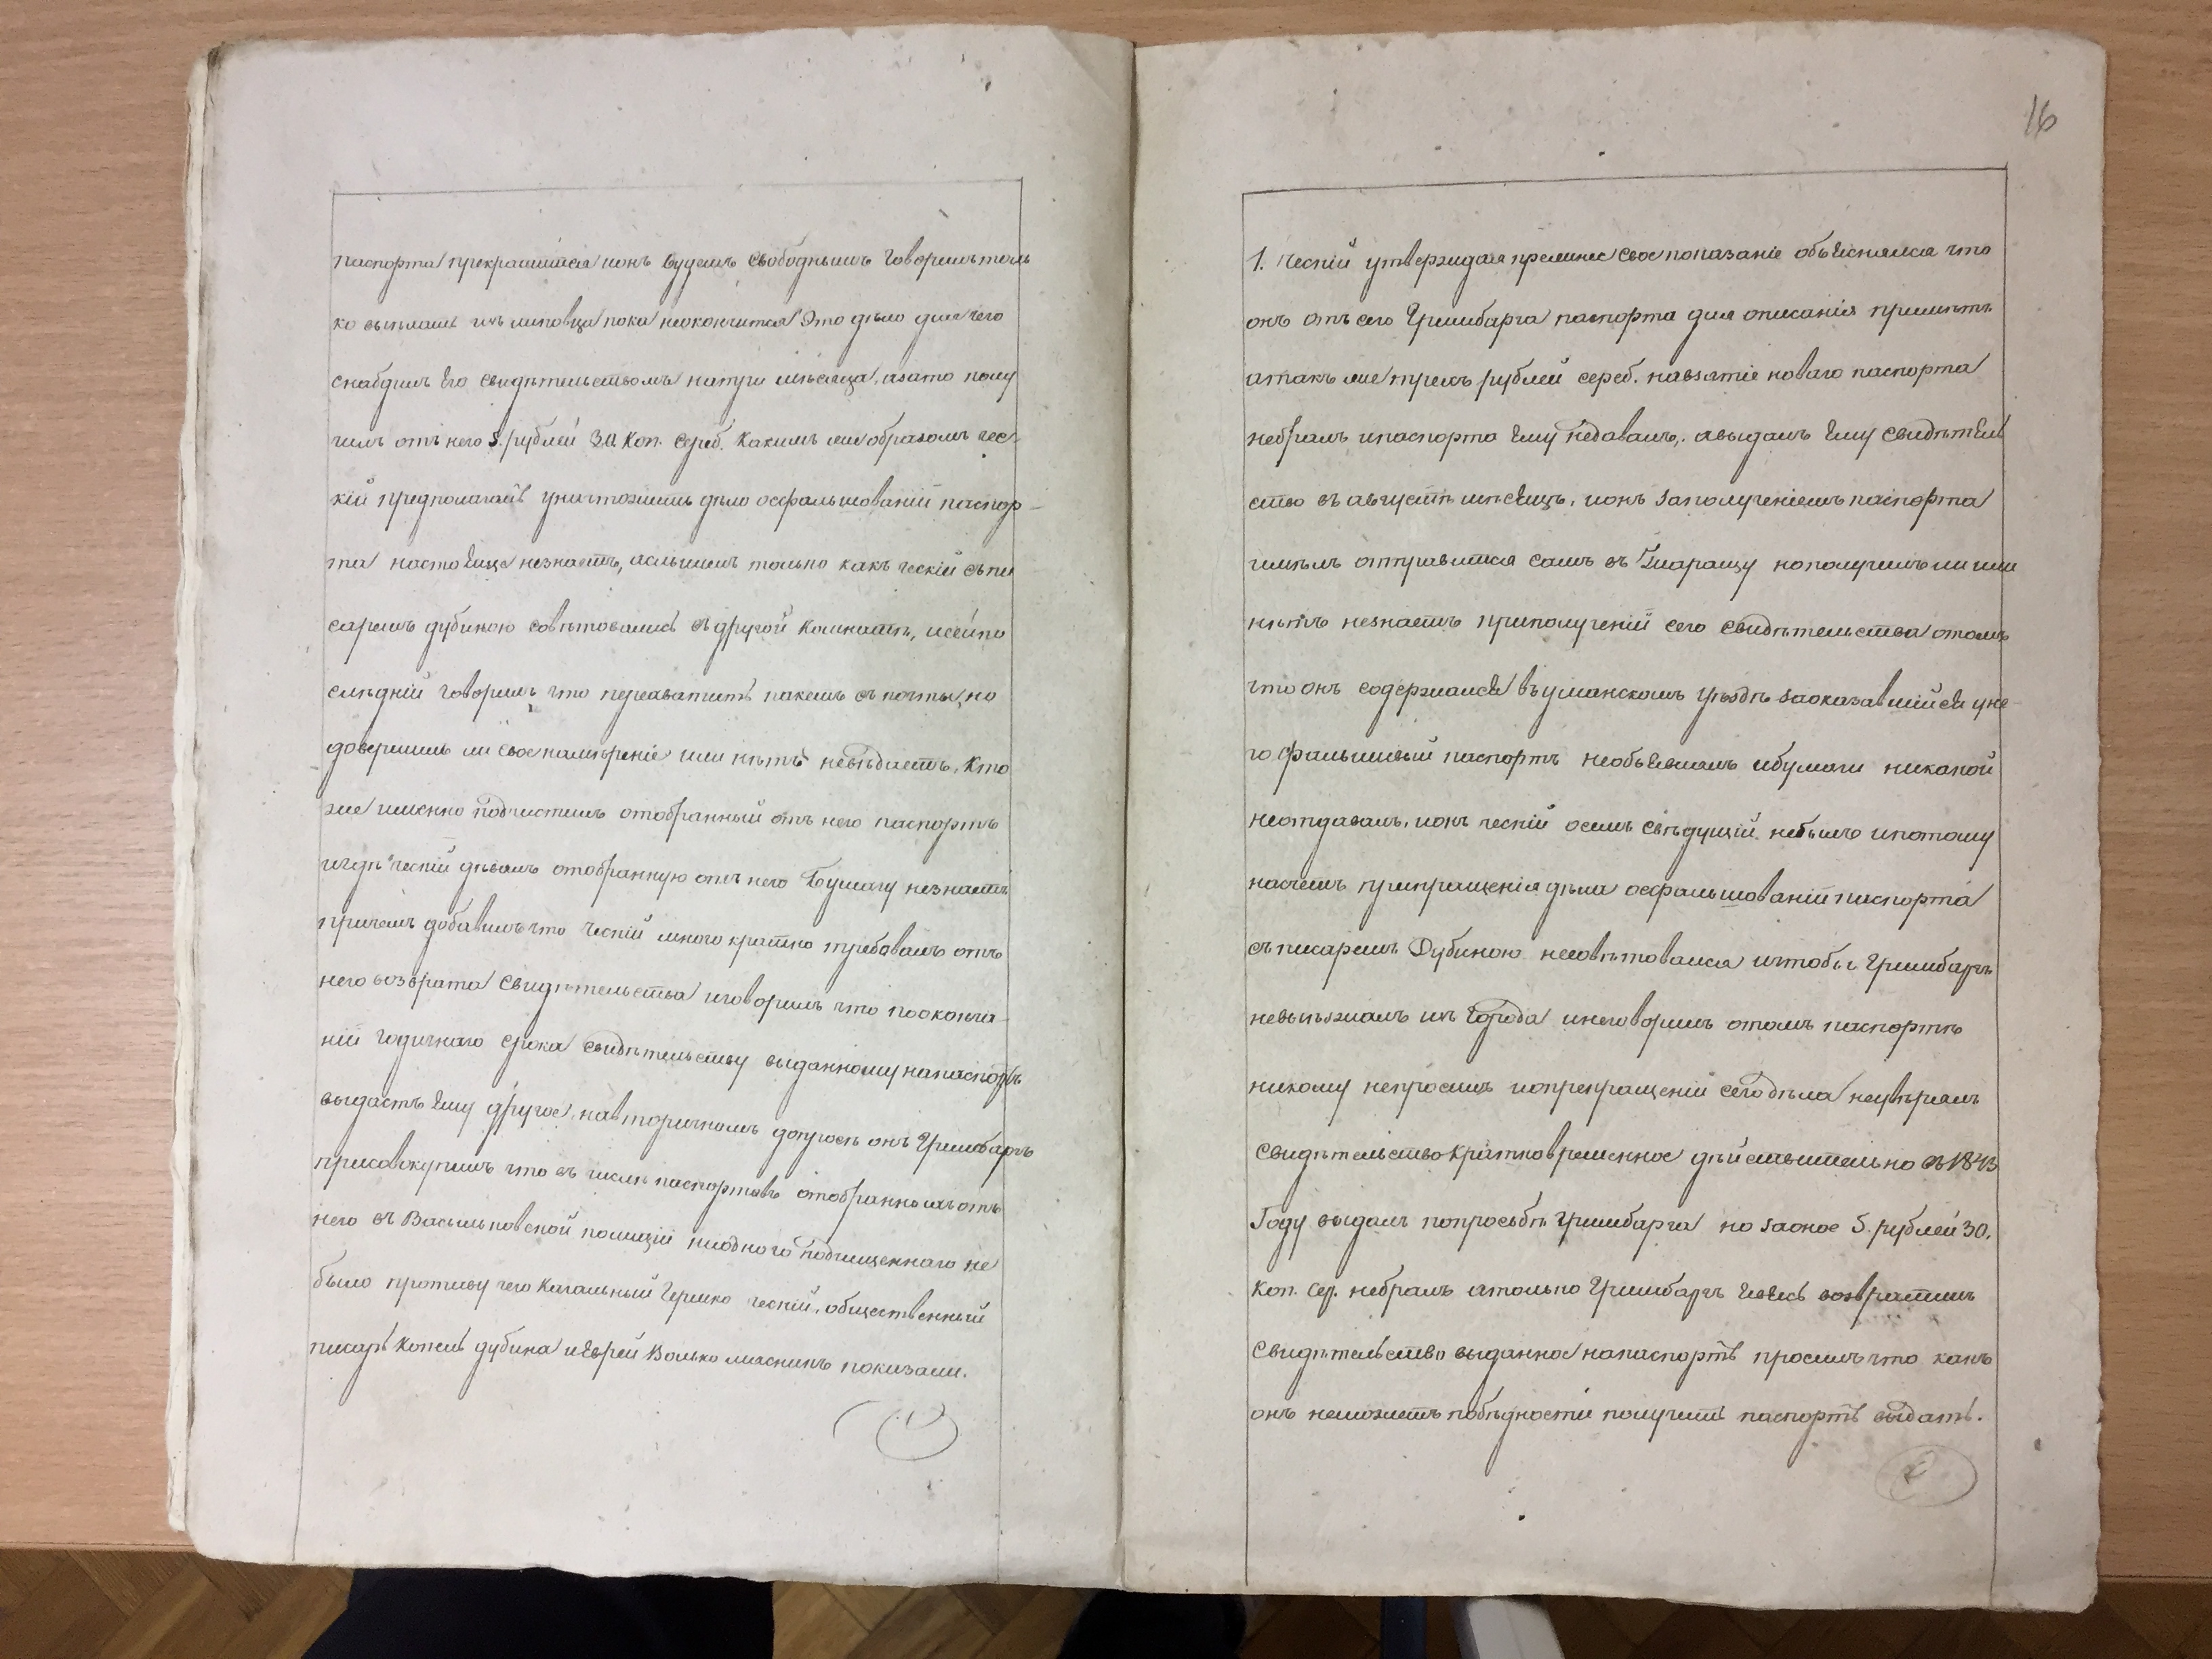 паспорта прекратится и онъ будетъ свободнымъ говорилъ толь
ко выехать изъ липовца пока неокончится Это дѣло для чего
снабдилъ Его свидѣтельствомъ натри мѣсяца, азато полу
чилъ отъ него 5. рублей 30 коп. Сереб. Какимъ же образомъ чес-
кій предполагалъ уничтожить дѣло офальшованіи паспор-
та настоЯще незнаетъ, аслышалъ только какъ ческій съ пи
саремъ дубиною совѣтовались въ другой комнатѣ, исей по
слѣдній говорилъ что перехватитъ пакетъ съ почты, но
довершилъ ли свое намѣреніе или нѣтъ невѣдаетъ, Кто
же именно подчистилъ отобранный отъ него паспортъ
игдѣ ческій дѣвалъ отобранную отъ него Бумагу незнаетъ
причемъ добавилъ что Ческій много кратно требовалъ отъ
него возврата Свидѣтельства иговорилъ что поокон­ча-
ніи годичнаго срока свидѣтельству выданному напаспортъ
выдастъ Ему другое, навторичномъ допросѣ онъ Гринбаргъ
присовокупилъ что въ числѣ паспортовъ отобранныхъ отъ
него въ Васильковской полиціи ниодного подчищеннаго не
было противу чего Кагальный Гершко ческій, общественный
писарь Копель дубина иЕврей Волько мясникъ показали.
16
1. Ческій утверждая прежнее свое показаніе объЯснился что
онъ отъ сего Гринбарга паспорта для описанія примѣтъ
атакъ же трехъ рублей сереб. навзятіе новаго паспорта
небралъ ипаспорта Ему недавалъ, авыдалъ Ему Свидѣтель
ство въ августѣ мѣсЯцѣ, ионъ заполученіемъ паспорта
имѣлъ отправится самъ въ Таращу нополучилъ ли или
нѣтъ незнаетъ приполученіи сего свидѣтельства отомъ
что онъ содержалсЯ въ уманскомъ уѣздѣ заоказавшийсЯ уне-
го фальшивый паспортъ необъЯвлялъ ибумаги никакой
неотдавалъ, ионъ ческій осемъ свѣдущій небылъ ипотому
насчетъ прикращенія дѣла офальшованіи паспорта
съ писаремъ Дубиною несовѣтовался ичтобы Гринбаргъ
невыѣзжалъ изъ Города инеговорилъ отомъ паспортѣ
никому непросилъ ипрекращеніи сего дѣла неувѣрялъ
Свидѣтельство кратковременное дѣйствительно въ 1843
Году выдалъ попросьбѣ Гринбарга но заоное 5. рублей 30.
Коп. Сер. небралъ атолько Гринбаргъ возвратилъ
Свидѣтельство выданное напаспортъ просилъ что какъ
онъ неможетъ побѣдности получить паспортъ выдать.